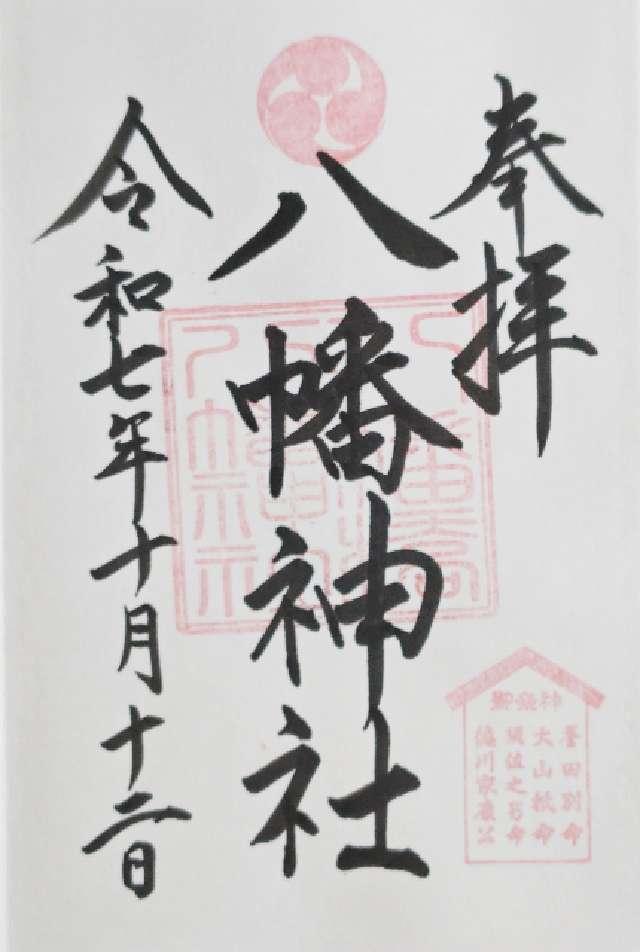 奉拝
八幡神社
令和七年十月十二日
御祭神
誉田別命
大山祇命
須佐之男命
徳川家康公